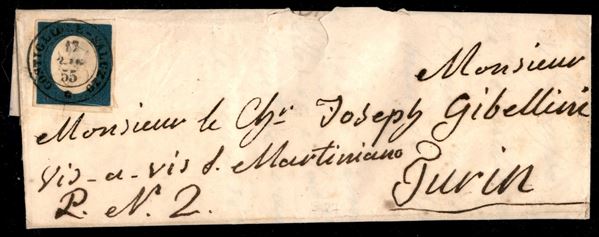 COSTIGLIOLE-SALUZZO
17
55
Monsieur
Monsieur le Chr Joseph Gibellini
vis-a-vis S. Martiniano
P. N. 2.
Turin